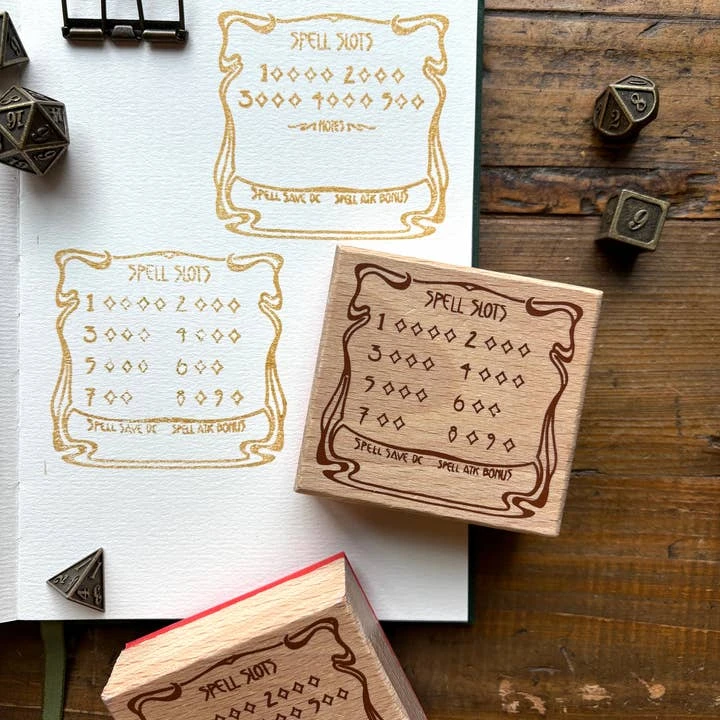 SPELL SLOTS
1◇◇◇◇ 2◇◇◇
3◇◇◇ 4◇◇◇ 5◇◇
NOTES
SPELL SAVE DC SPELL ATK BONUS
SPELL SLOTS
1 ◇◇◇◇ 2 ◇◇◇
3 ◇◇◇ 4 ◇◇◇
5 ◇◇◇ 6 ◇◇
7 ◇◇ 8 ◇ 9 ◇
SPELL SAVE DC SPELL ATK BONUS
SPELL SLOTS
1 ◇◇◇◇ 2 ◇◇◇
3 ◇◇◇ 4 ◇◇◇
5 ◇◇◇ 6 ◇◇
7 ◇◇ 8 ◇ 9 ◇
SPELL SAVE DC SPELL ATK BONUS
SPELL SLOTS
2 ◇◇◇
5 ◇◇
16
8
2
9